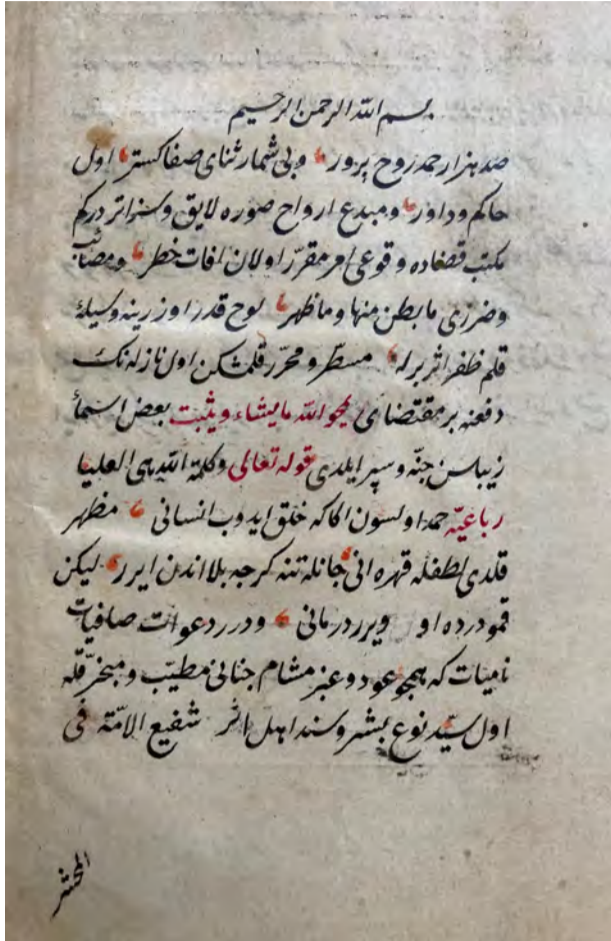 بسم الله الرحمن الرحيم
صد هزار حمد روح پرور وبی شمار ثنای صفاکستر اول
حاکم وداور ومبدع ارواح صوره لایق وسزاتر درکم
مکتب قضاده وقوعی امر مقرّر اولان افات خطر ومصائب
وضرری مابطن منها وماظهر لوح قدر اوزرینه وسیلهٔ
قلم ظفر اثر برله مسطّر ومحرّر قلمشکن اول نازله نک
دفعنه بر مقتضای یمحو الله مایشاء ویثبت بعض اسمآ
زیباسن جنّه وسپر ایلدی قوله تعالی وکلمة الله هی العلیا
رباعیّه حمد اولسون اکا که خلق ایدوب انسانی مظهر
قلدی لطفله قهره انی جانله تنه کرچه بلا اندن ایرر لیکن
قمو درده او ویرر درمانی ودرر دعوات صافیات
نامیات که همچو عود وعنبر مشام جنانی مطیّب ومبخّر قله
اول سیّد نوع بشر وسند اهل اثر شفیع الامّة فی
المحشر